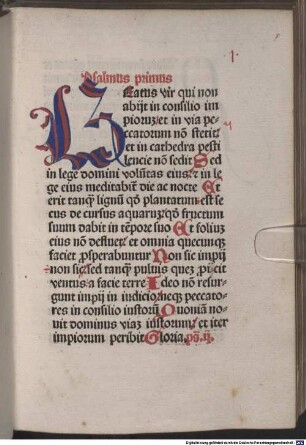 1.
Psalmus primus
BEatus vir qui non
abijt in consilio im
pioruz et in via pec
catorum nõ stetit
et in cathedra pesti
lencie nõ sedit Sed
in lege domini volũtas eius et in le
ge eius meditabit̃ die ac nocte Et
erit tanq̃ lignũ qđ plantatum est se
cus de cursus aquaruz qđ fructum
suum dabit in tẽpore suo Et foliuz
eius nõ defluet et omnia quecunq̃
faciet ꝓsperabuntur Non sic impij
non sic sed tanq̃ puluis quez ꝓijcit
ventus a facie terre Ideo nõ resur
gunt impij in iudicio neq̃ peccato
res in consilio iustorũ Quoniã no
uit dominus viaz iustorum et iter
impiorum peribit Gloria. ps̃. ij.